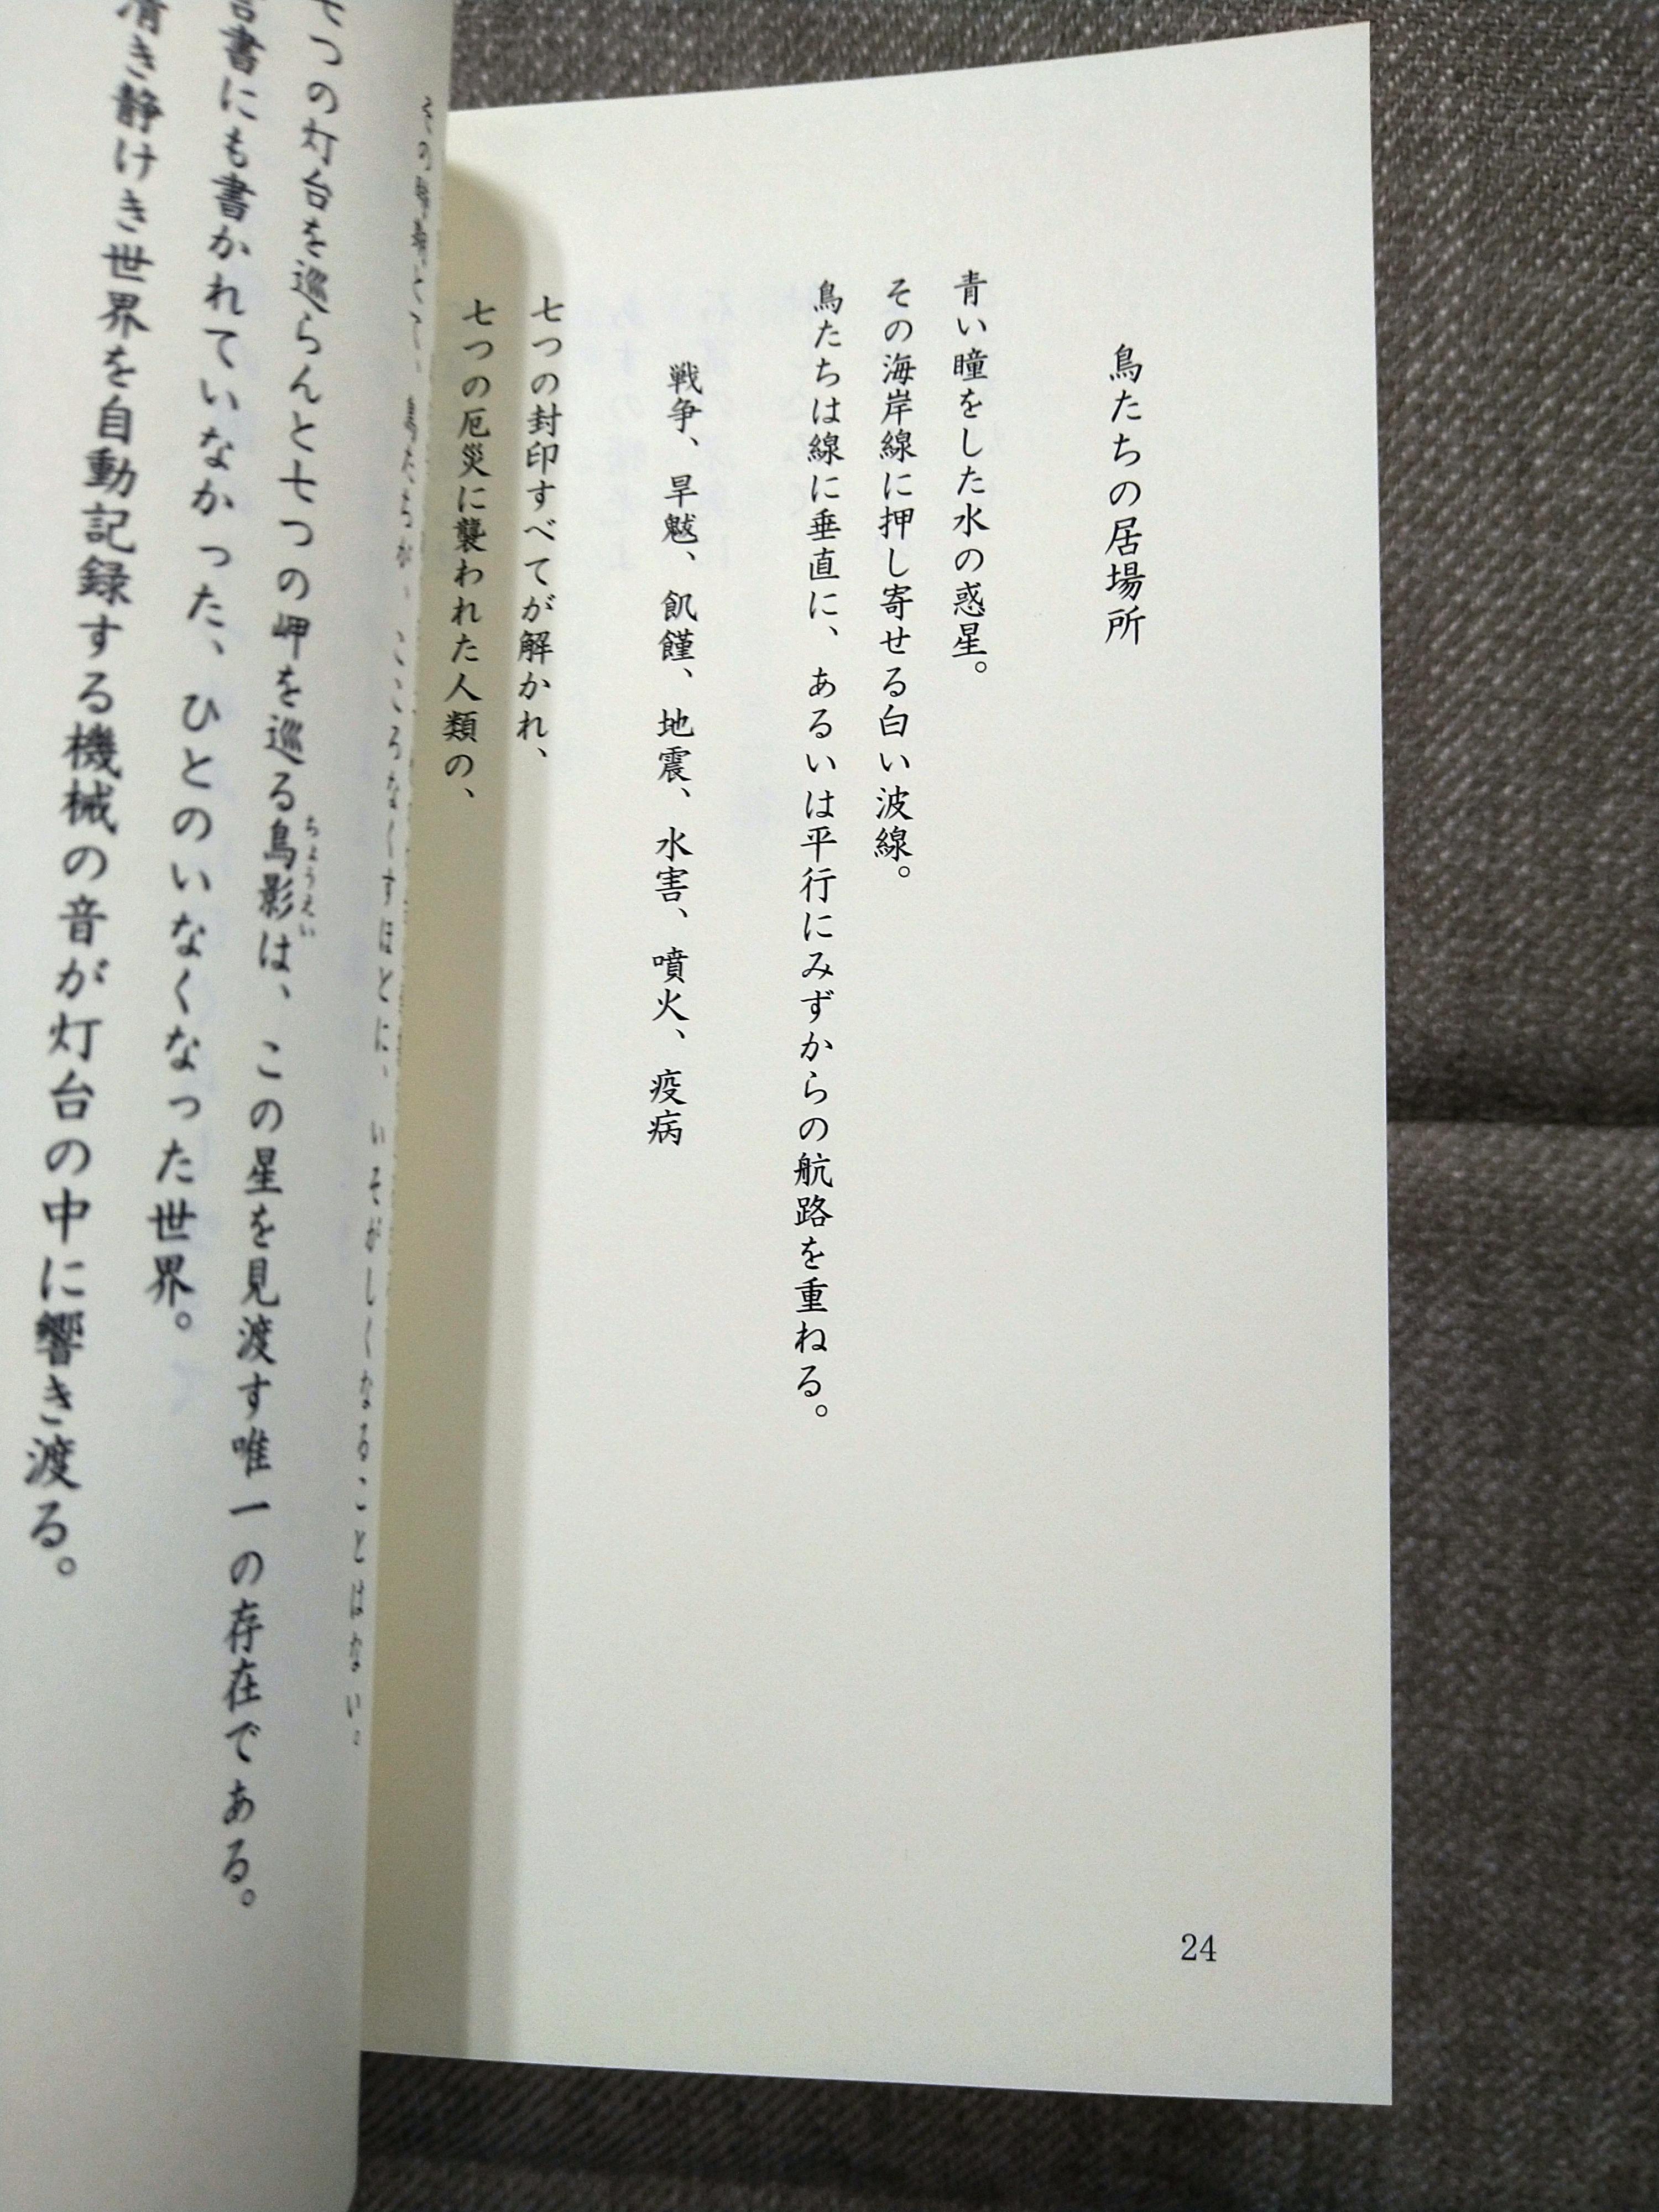 鳥たちの居場所
青い瞳をした水の惑星。
その海岸線に押し寄せる白い波線。
鳥たちは線に垂直に、あるいは平行にみずからの航路を重ねる。
戦争、旱魃、飢饉、地震、水害、噴火、疫病
七つの封印すべてが解かれ、
七つの厄災に襲われた人類の、
24
鳥たちが、こころなくすほどに、いそがしくなることはない。
七つの灯台を巡らんと七つの岬を巡る鳥影は、この星を見渡す唯一の存在である。
ちょうえい
書にも書かれていなかった、ひとのいなくなった世界。
清き静けき世界を自動記録する機械の音が灯台の中に響き渡る。